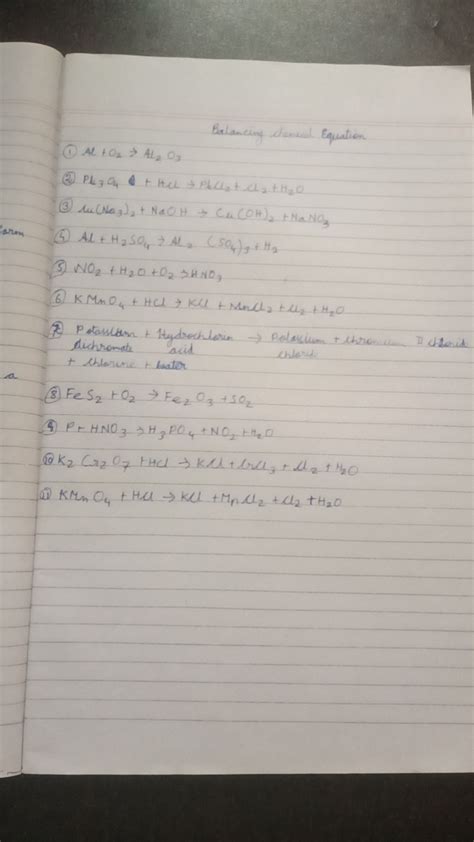 Balancing chemical Equation
① Al + O2 → Al2O3
② Pb3O4 + HCl → PbCl2 + Cl2 + H2O
③ Cu(No3)2 + NaOH → Cu(OH)2 + NaNO3
④ Al + H2SO4 → Al2 (SO4)3 + H2
⑤ NO2 + H2O + O2 → HNO3
⑥ KMnO4 + HCl → KCl + MnCl2 + Cl2 + H2O
⑦ Potassium + Hydrochloric → Potassium + chromium chlorid
dichromate acid chlorid
+ chlorine + water
⑧ FeS2 + O2 → Fe2O3 + SO2
⑨ P + HNO3 → H3PO4 + NO2 + H2O
⑩ K2Cr2O7 + HCl → KCl + CrCl3 + Cl2 + H2O
⑪ KMnO4 + HCl → KCl + MnCl2 + Cl2 + H2O
a